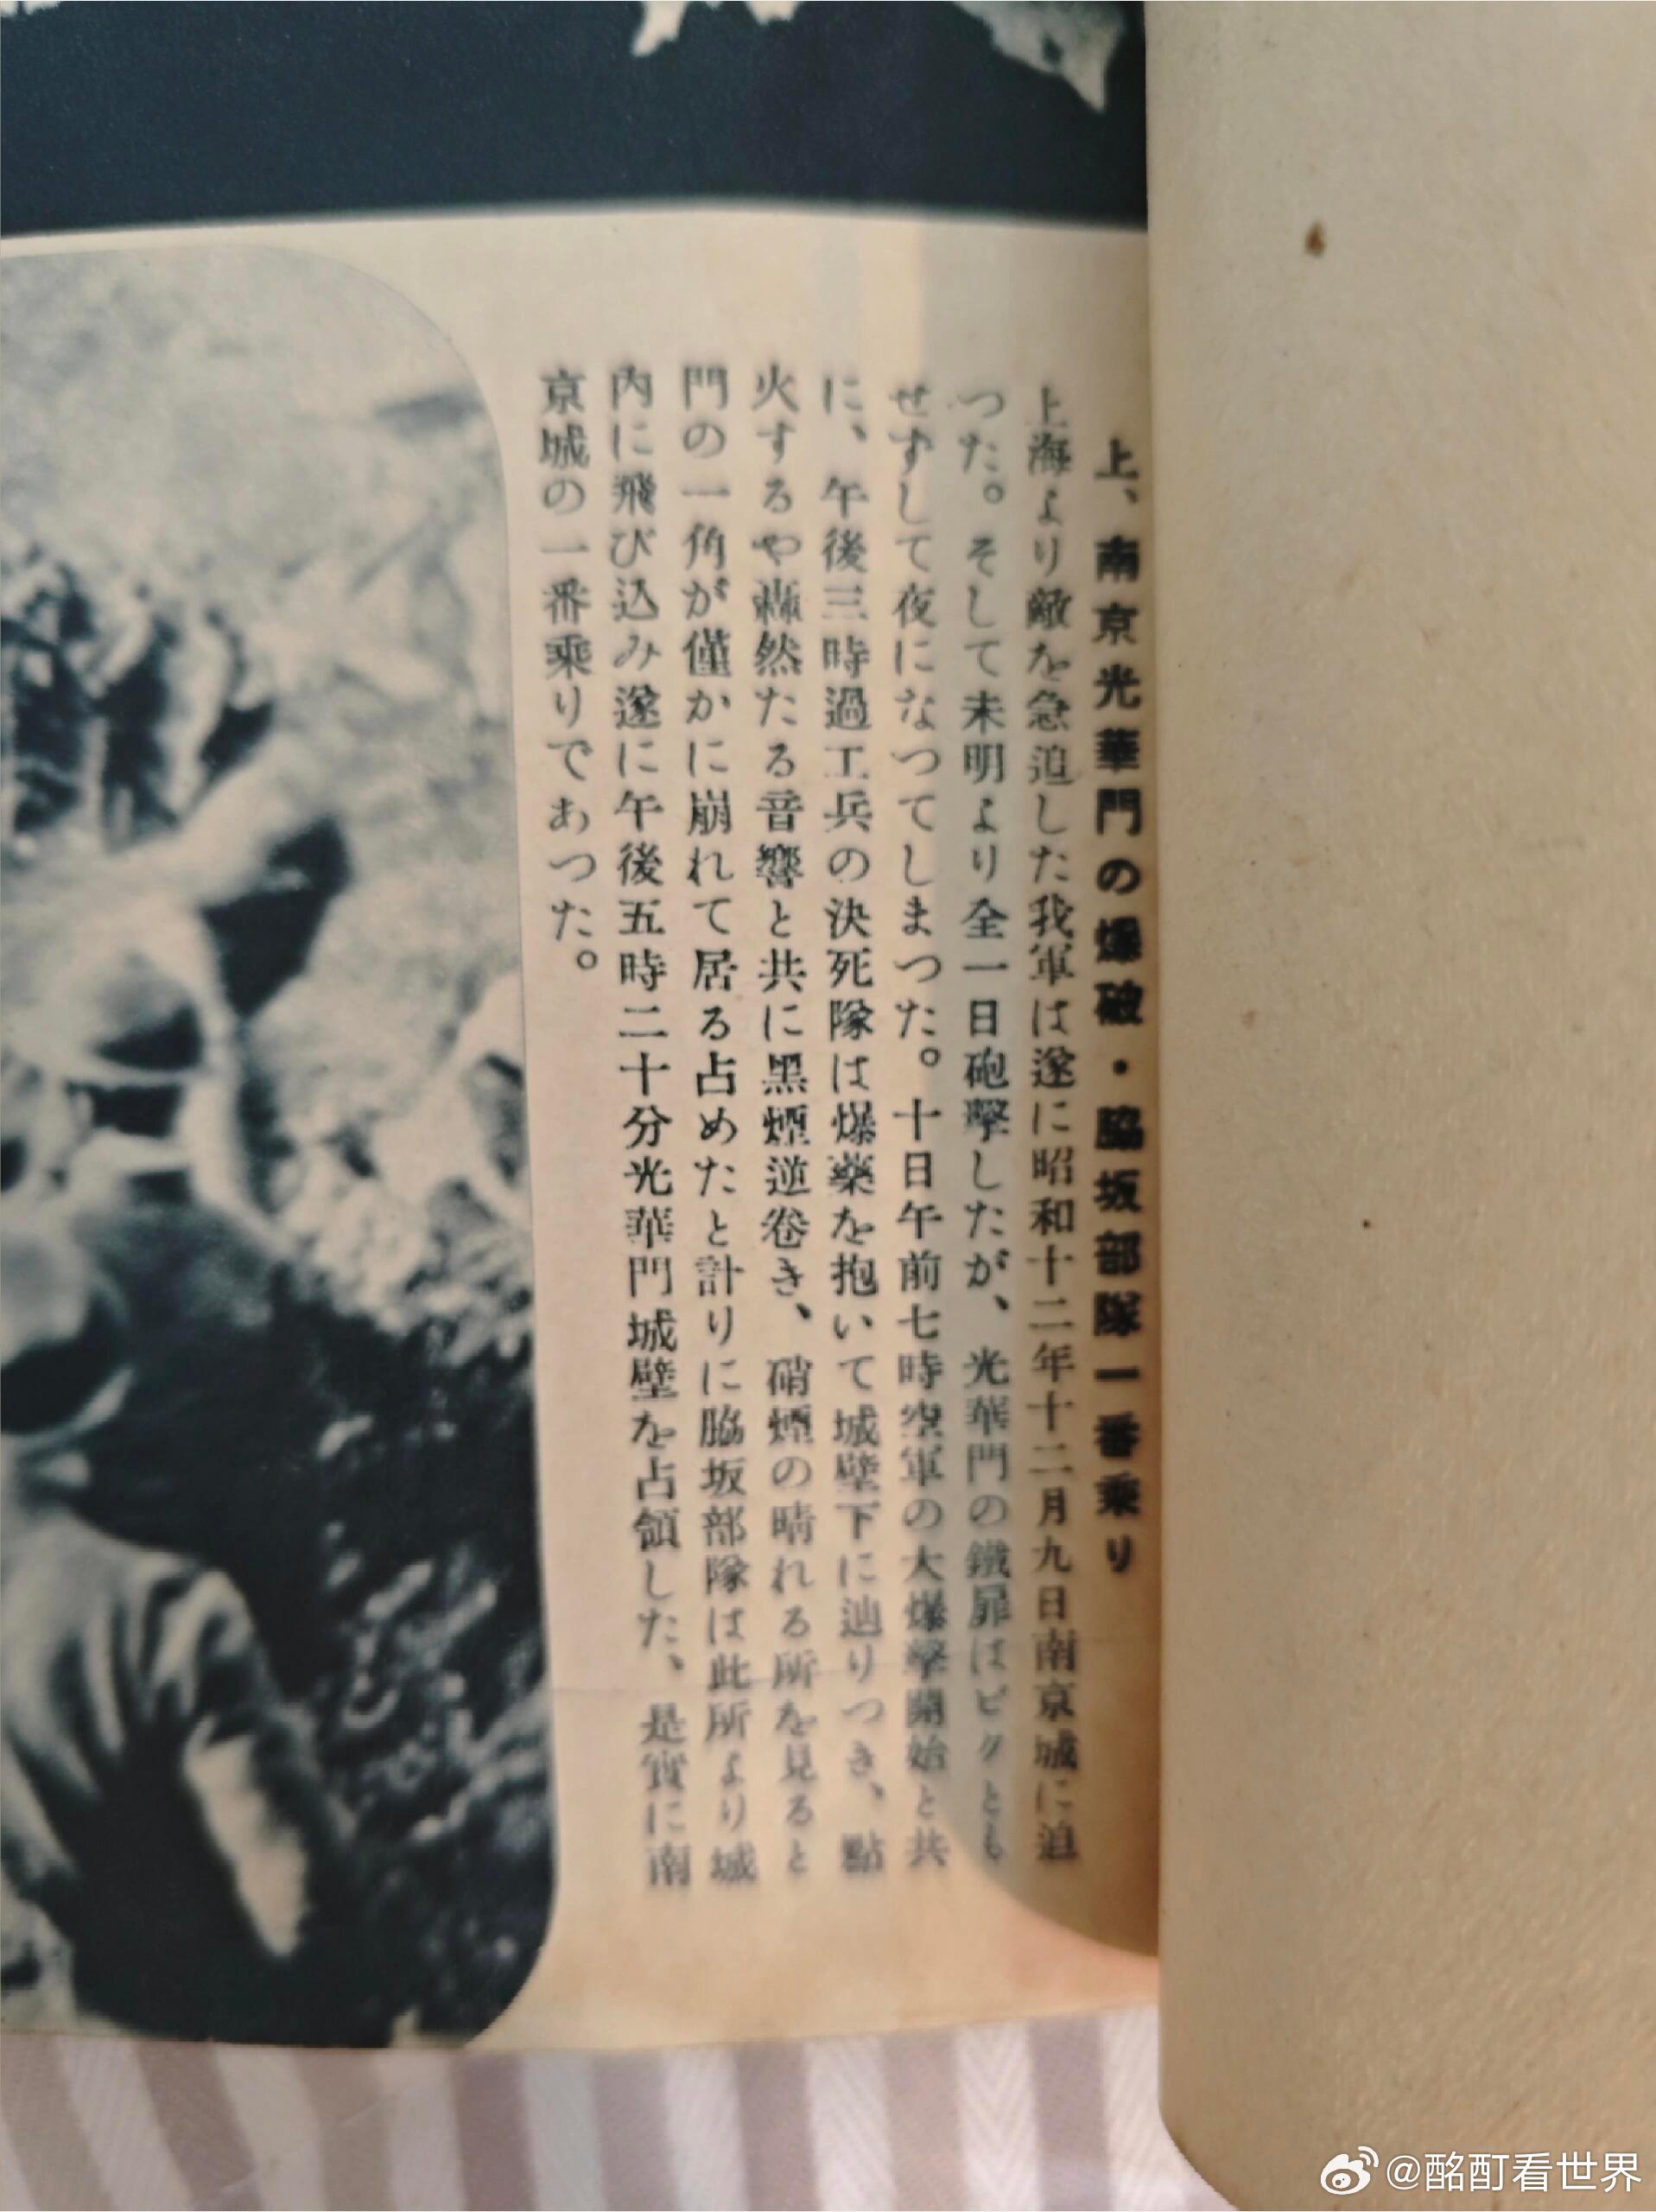 上、南京光華門の爆破・脇坂部隊一番乘り
上海より敵を急迫した我軍は遂に昭和十二年十二月九日南京城に迫
つた。そして未明より全一日砲擊したが、光華門の鐵扉はビクとも
せずして夜になつてしまつた。十日午前七時空軍の大爆擊開始と共
に、午後三時過工兵の決死隊は爆藥を抱いて城壁下に辿りつき、點
火するや轟然たる音響と共に黑煙逆卷き、硝煙の晴れる所を見ると
門の一角が僅かに崩れて居る占めたと計りに脇坂部隊は此所より城
內に飛び込み遂に午後五時二十分光華門城壁を占領した、是實に南
京城の一番乘りであつた。
@酩酊看世界